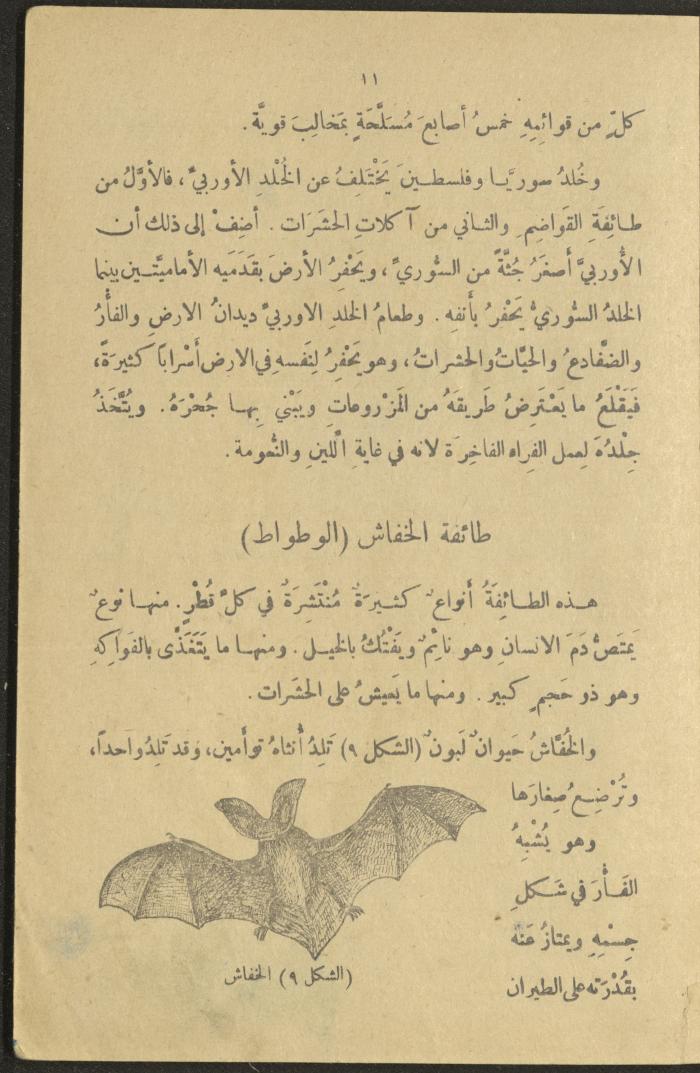 ١١
كلّ من قوائمِهِ خمسُ أصابعَ مُسَلَّحَةٍ بمَخالِبَ قويَّة .
وخُلدُ سوريَّا وفلسطينَ يَخْتَلِفُ عن الخُلْدِ الأوربيّ ، فالأوَّلُ من
طائِفَةِ القَواضِمِ والثاني من آكلاتِ الحشَرَات . أضِفْ إلى ذلك أن
الأُوربيَّ أَصغَرُ جُثَّةً من السُّوريِّ ، ويَحْفِرُ الأرضَ بقَدَمَيه الأماميَّتَين بينما
الخلدُ السُّوريُّ يَحْفِرُ بأنفِه . وطعامُ الخلدِ الاوربيِّ ديدانُ الارضِ والفأْرُ
والضَّفادعُ والحيَّاتُ والحشراتُ ، وهو يَحْفِرُ لِنَفسِهِ في الارض أَسْرابًا كثيرَةً ،
فَيَقْلَعُ ما يَعْتَرِضُ طَريقَهُ من المَزْروعاتِ ويَبْني بِها جُحْرَهُ . ويُتَّخَذُ
جِلْدُهُ لِعمل الفِراء الفاخِرَة لانه في غايةِ اللّينِ والنُّعومة .
طائفة الخفاش (الوطواط)
هذه الطائِفَةُ أَنواعٌ كثيرَةٌ مُنْتَشِرَةٌ في كلّ قُطْرٍ . منها نوعٌ
يَمتَصُّ دَمَ الانسانِ وهو نائِمٌ ويَفْتُكُ بالخيل . ومنها ما يَتَغَذَّى بالفَوَاكِهِ
وهو ذو حَجمٍ كبير . ومنها ما يَعيشُ على الحشَرات .
والخُفَّاشُ حَيوانٌ لَبونٌ (الشكل ٩) تَلِدُ أُنثاهُ توأمين ، وقد تَلِدُ واحداً ،
وتُرْضِعُ صِغارَها
وهو يُشْبِهُ
الفَأْرَ في شَكلِ
جِسْمِهِ ويمتازُ عَنْهُ
بقُدْرَتِه على الطيران
(الشكل ٩) الخفاش